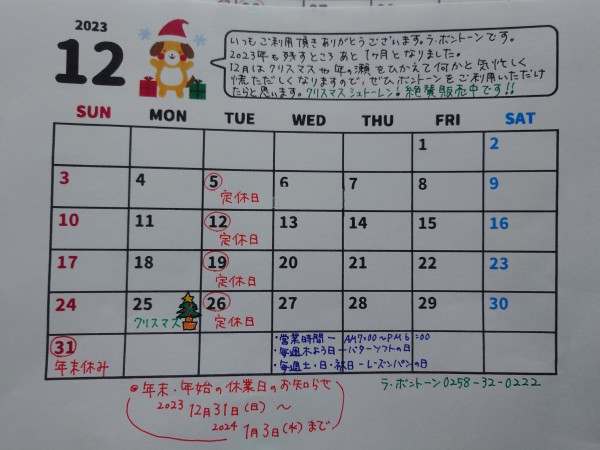 2023
12
いつもご利用頂きありがとうございます。ラ・ボントーンです。
2023年も残すところあと1ヶ月となりました。
12月はクリスマスや年の瀬をひかえて何かと気忙しく
慌ただしくなりますので、ぜひボントーンをご利用いただけ
たらと思います。クリスマスシュトーレン!絶賛販売中です!!
SUN MON TUE WED THU FRI SAT
1 2
3 4 5 6 7 8 9
定休日
10 11 12 13 14 15 16
定休日
17 18 19 20 21 22 23
定休日
24 25 26 27 28 29 30
クリスマス 定休日
31
年末休み
・営業時間ー AM7:00〜PM6:00
・毎週木よう日ーバターソフトの日
・毎週土・日・祝日ーレーズンパンの日
ラ・ボントーン0258-32-0222
◎年末・年始の休業日のお知らせ
2023 12月31日(日)〜
2024 1月3日(水)まで